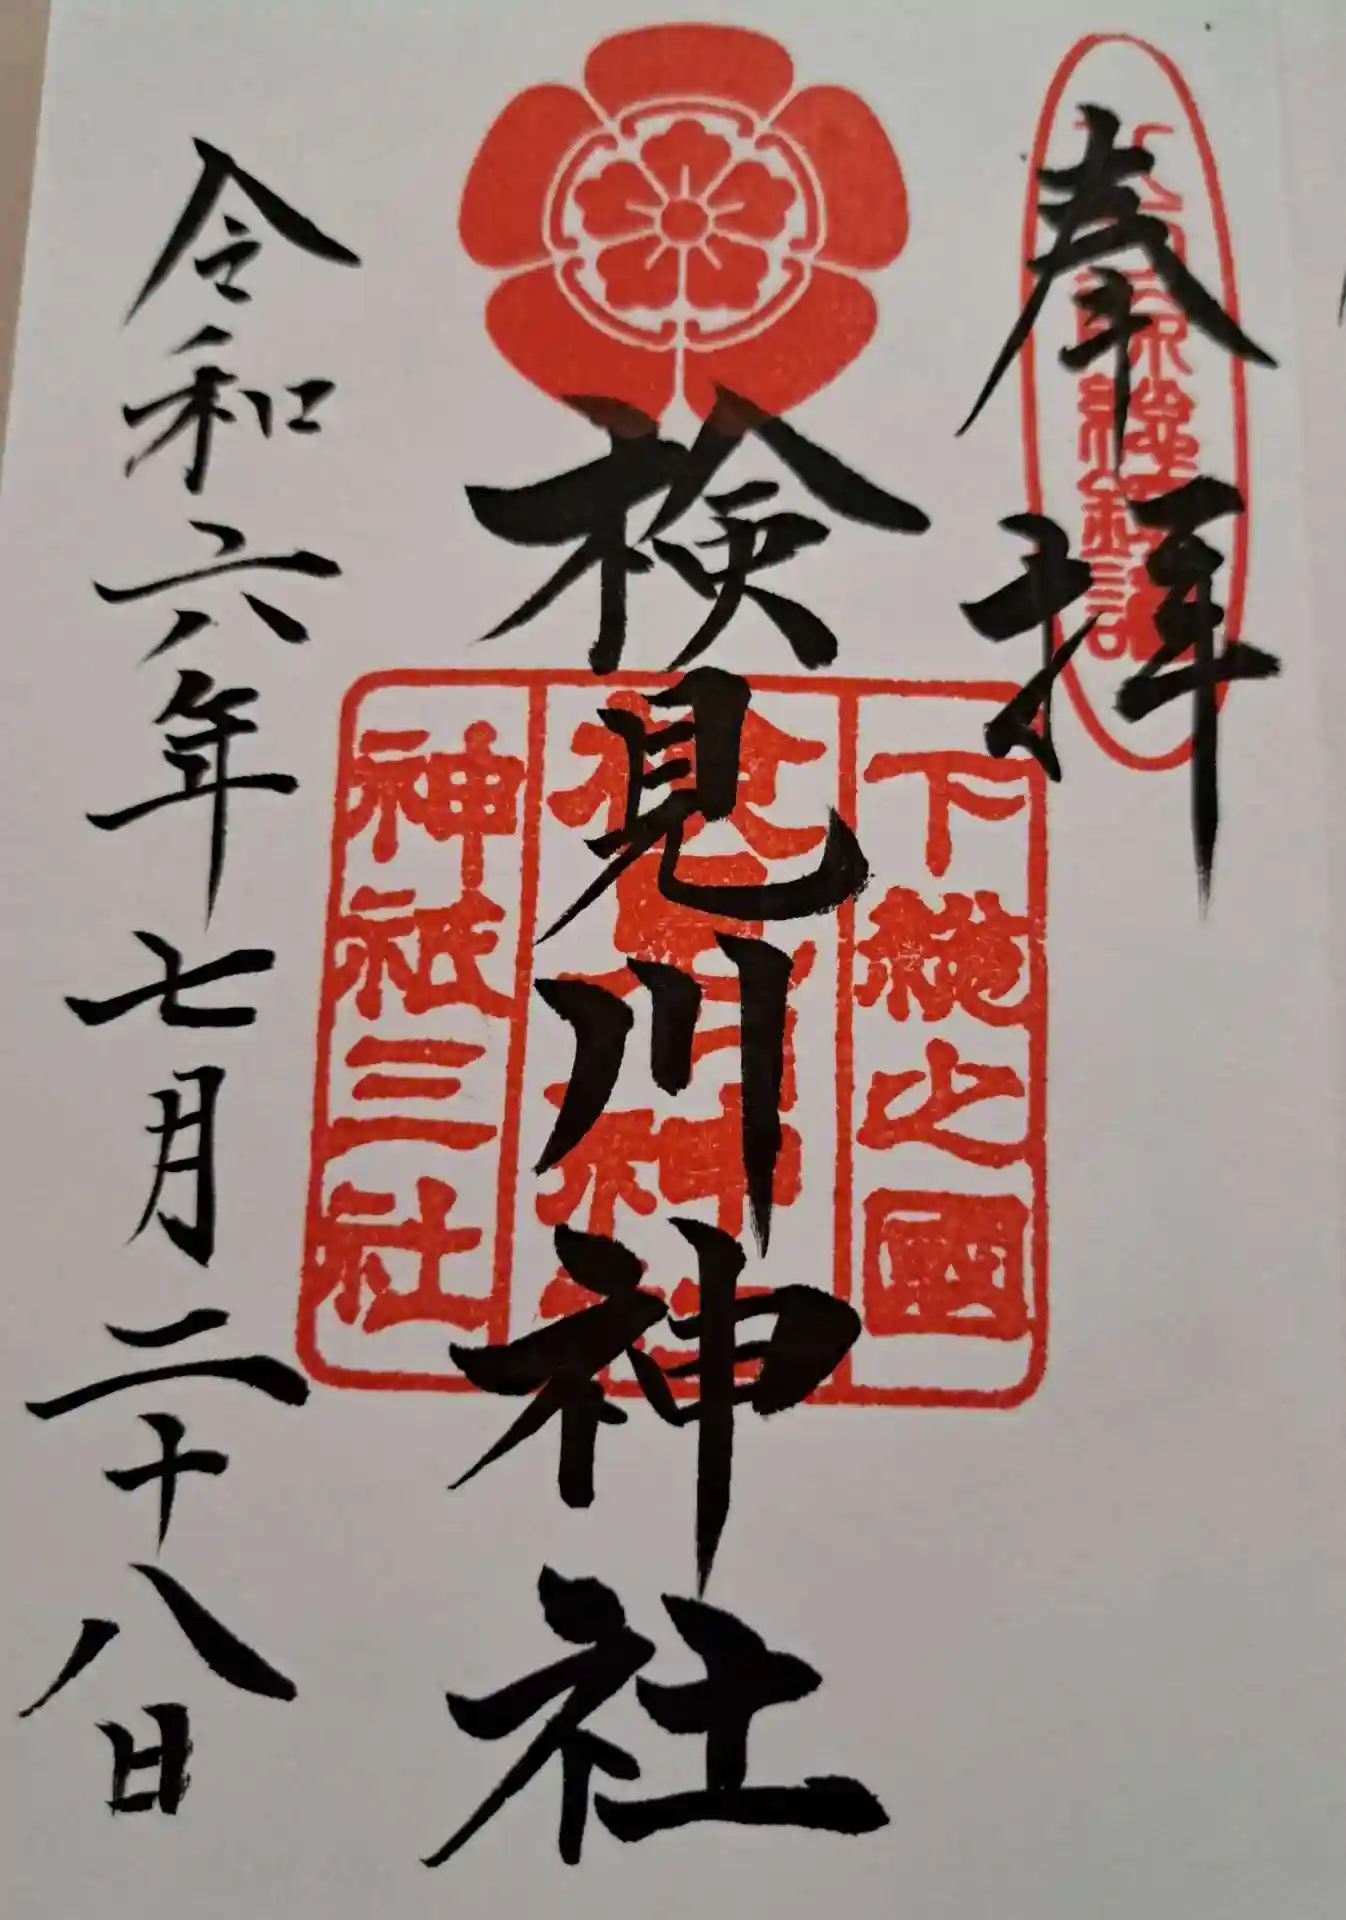 奉拝
下総之國
検見川神社
検見川神社
神祇三社
令和六年七月二十八日